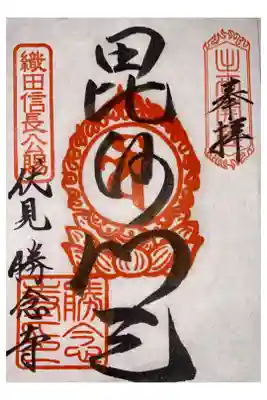 奉拝
毘沙門天
織田信長公賜
伏見 勝念寺
勝念